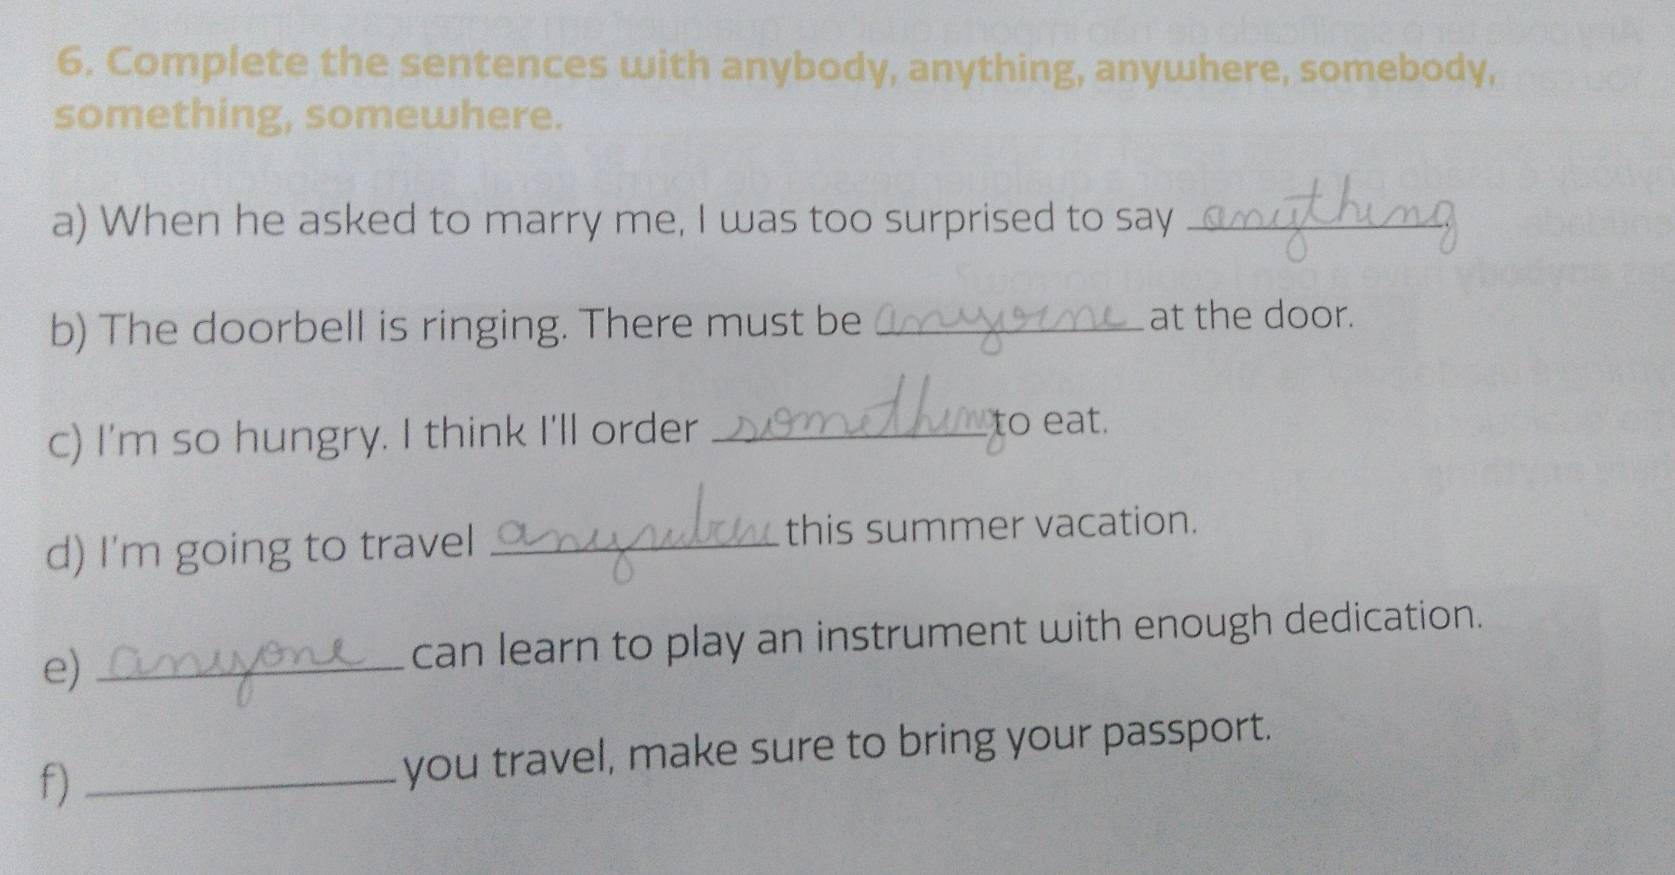 6. Complete the sentences with anybody, anything, anywhere, somebody,
something, somewhere.
a) When he asked to marry me, I was too surprised to say anything.
b) The doorbell is ringing. There must be anyone at the door.
c) I'm so hungry. I think I'll order something to eat.
d) I'm going to travel this summer vacation.
e) anyone can learn to play an instrument with enough dedication.
f) ____________ you travel, make sure to bring your passport.